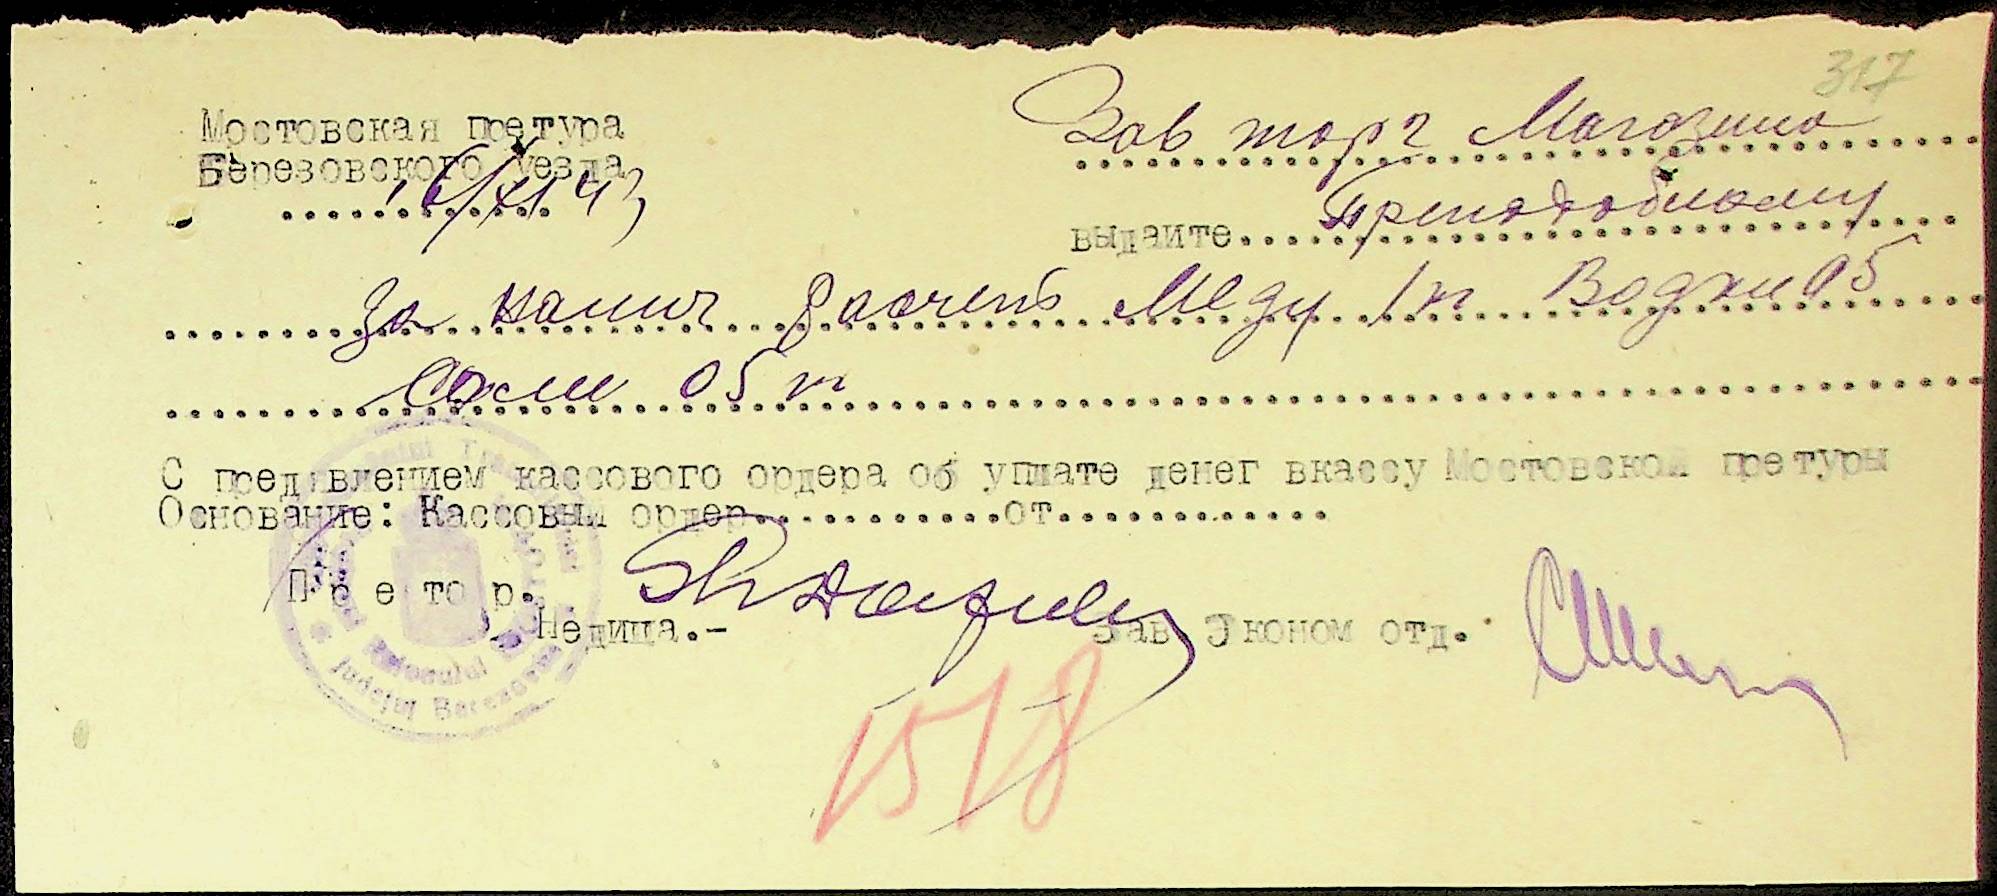 317
Мостовская претура
Березовского уезда
16/XI 43
Зав торг Магозина
выдайте Преподобному
За налич расчет Меду 1 кг Водки 05
Соли 05 кг
С предявлением кассового ордера об уплате денег вкассу Мостовской претуры
Основание: Кассовый ордер............от.............
Претор.
Недица.-
Зав Эконом отд.
Judeţul Berezovca
1518